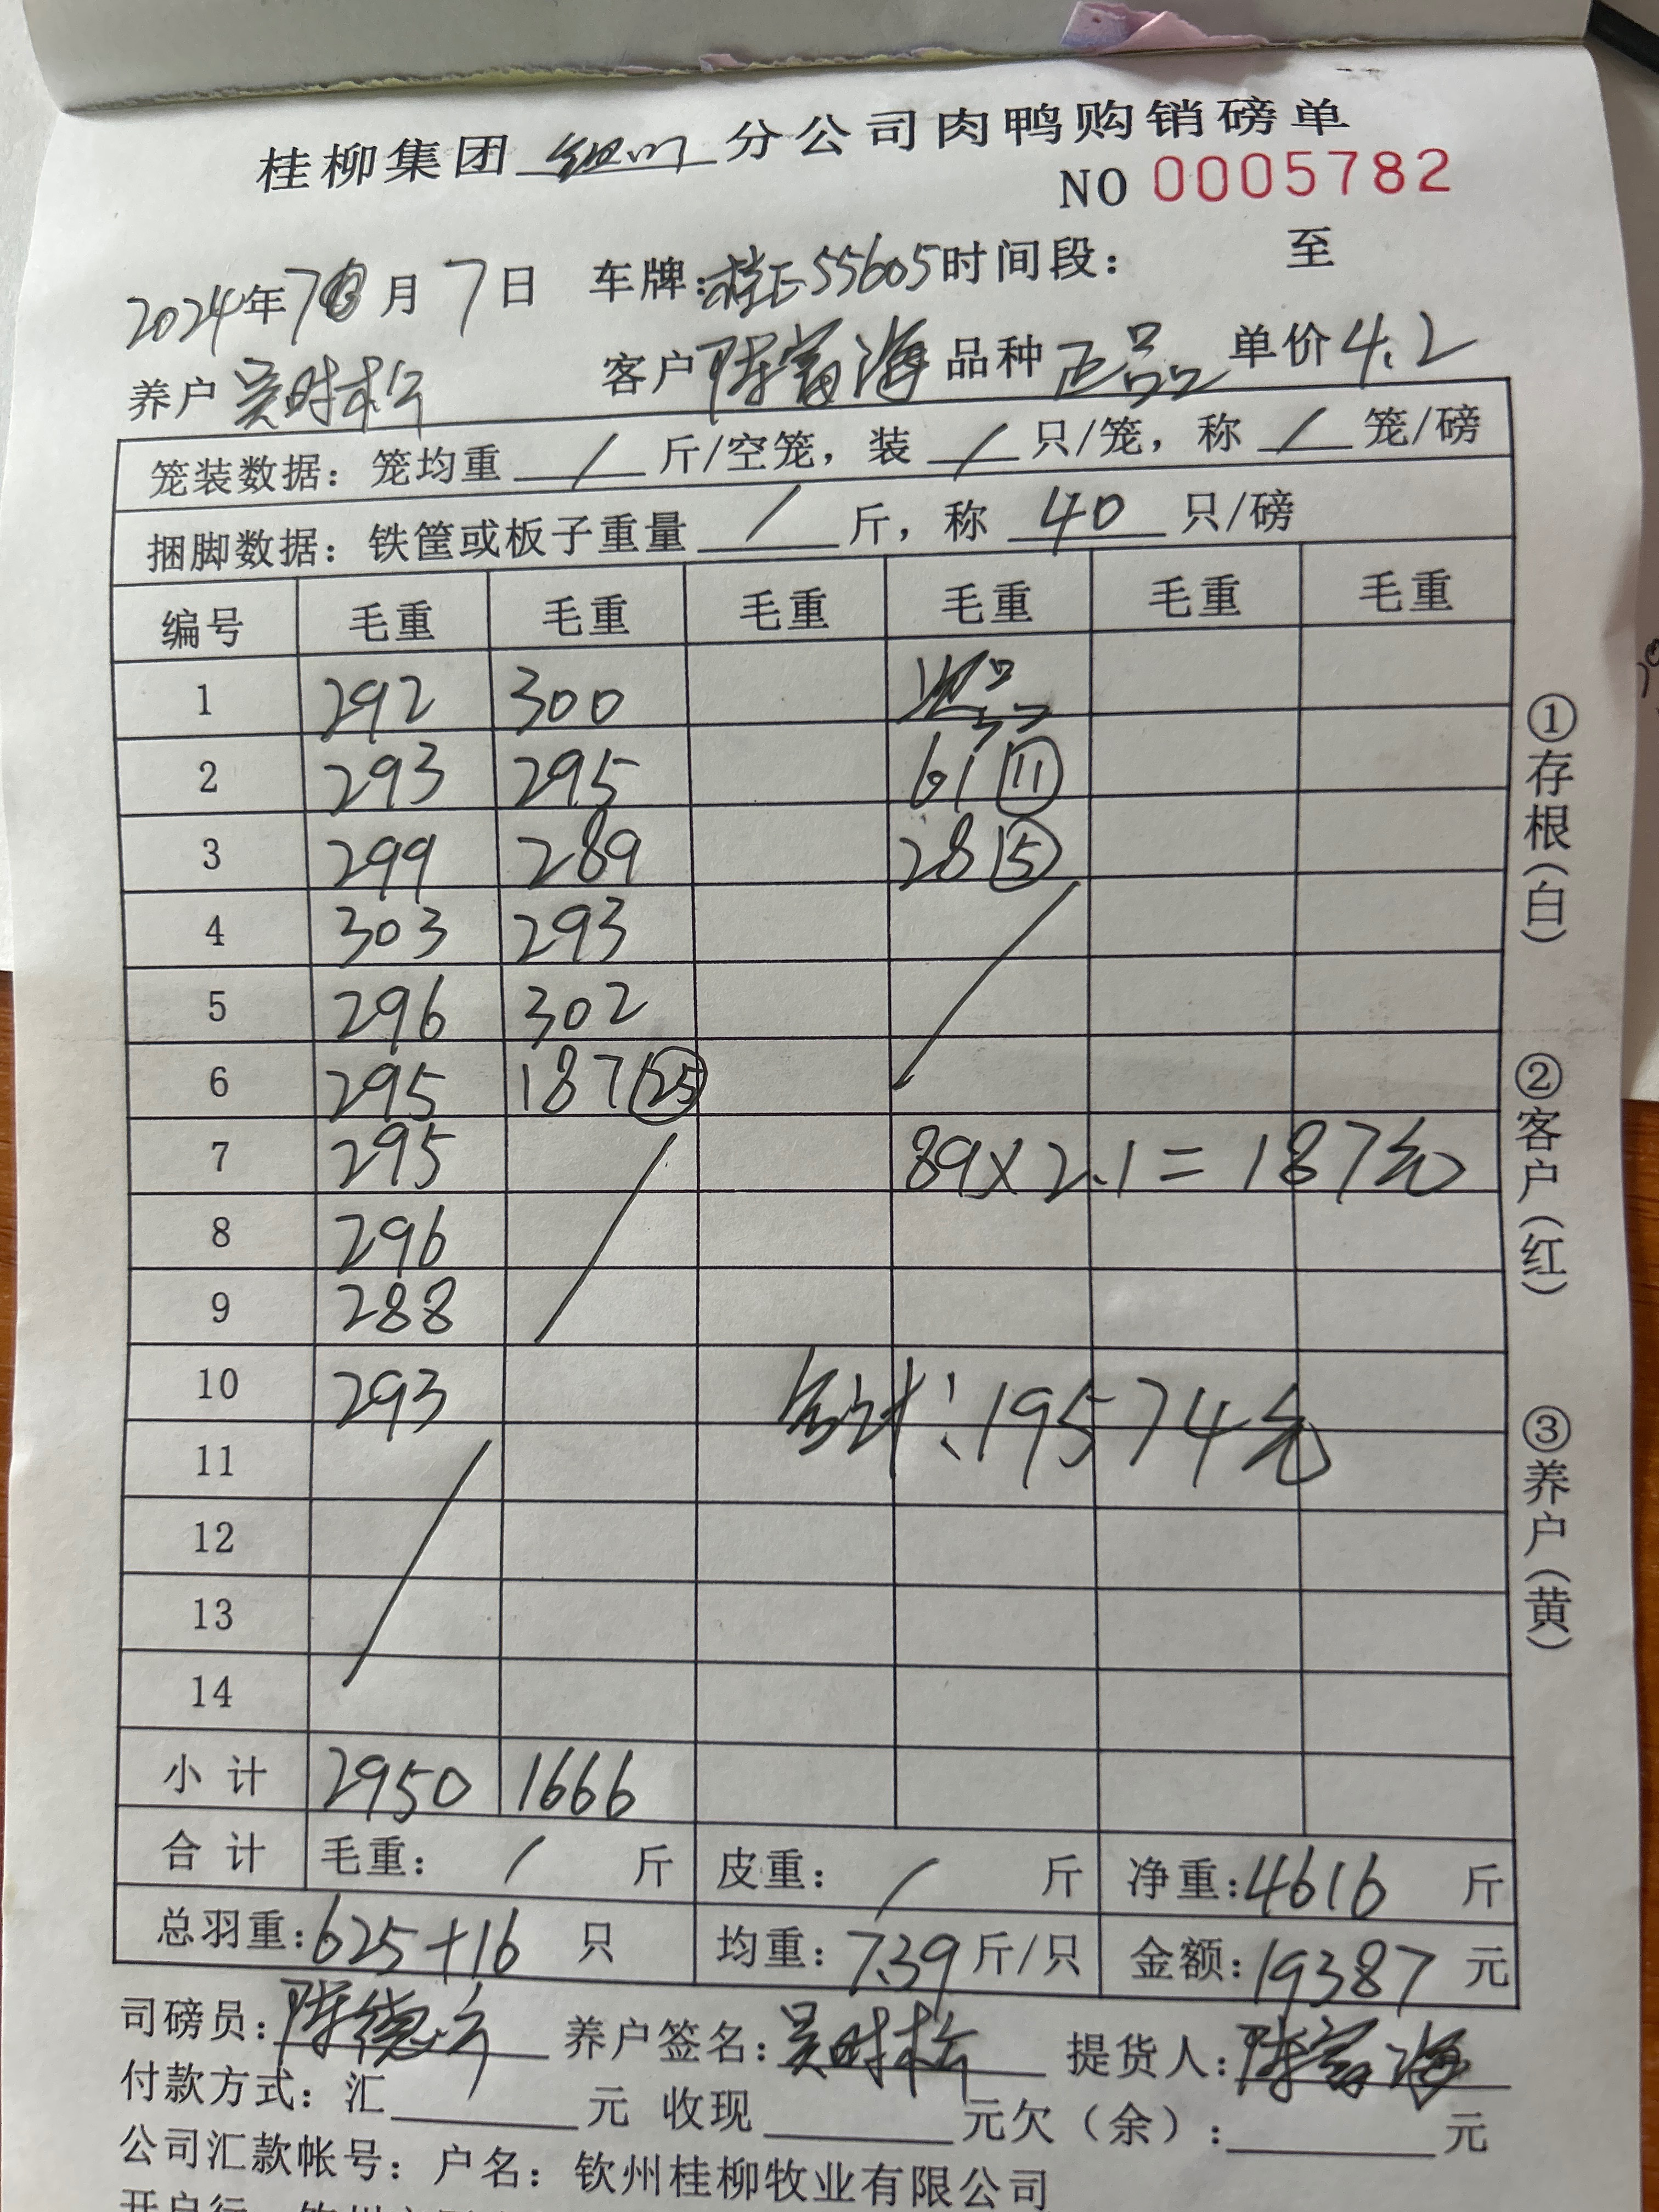 桂柳集团 钦州 分公司肉鸭购销磅单
NO 0005782
2024年7月7日 车牌:桂E55605时间段: 至
养户 吴时松 客户 陈富海 品种 正品 单价 4.2
笼装数据: 笼均重 / 斤/空笼, 装 / 只/笼, 称 / 笼/磅
捆脚数据: 铁筐或板子重量 / 斤, 称 40 只/磅
编号 毛重 毛重 毛重 毛重 毛重 毛重
1 292 300 次品
2 293 295 61 ⑪
3 299 289 28 ⑤
4 303 293
5 296 302
6 295 187 ㉕
7 295 89×2.1=187元
8 296
9 288
10 293 合计:19574元
11
12
13
14
小计 2950 1666
合计 毛重: / 斤 皮重: / 斤 净重:4616 斤
总羽重:625+16 只 均重:7.39 斤/只 金额:19387 元
司磅员:陈德 养户签名:吴时松 提货人:陈富海
付款方式: 汇 元 收现 元欠(余): 元
公司汇款帐号: 户名: 钦州桂柳牧业有限公司
①存根(白)
②客户(红)
③养户(黄)